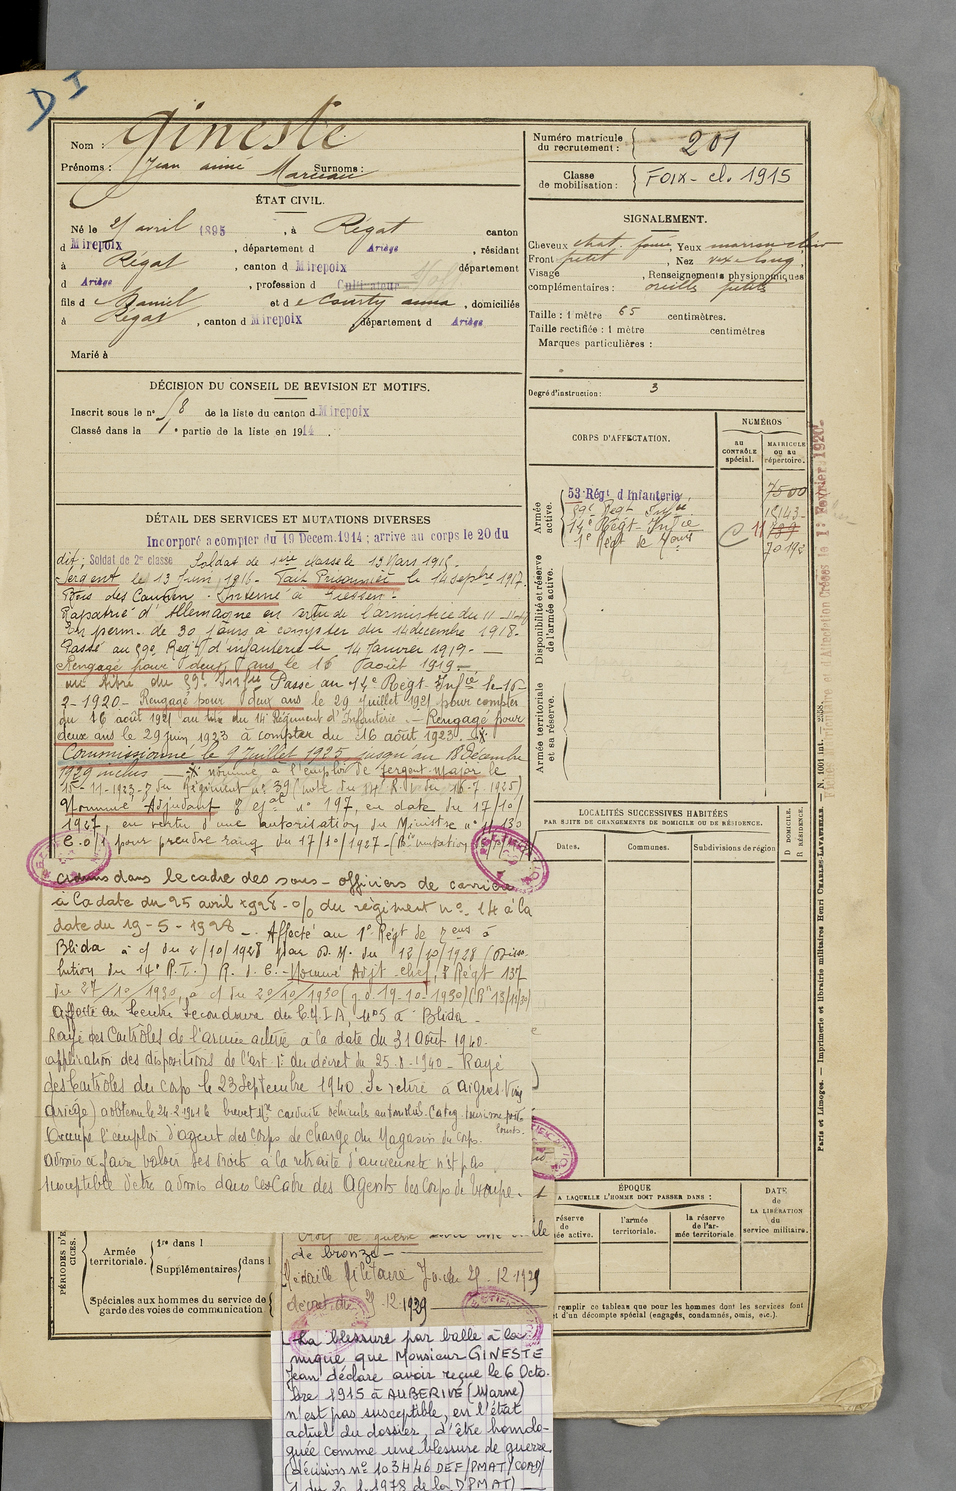 D I
Nom : Gineste
Prénoms : Jean aimé Marceau Surnoms :
Numéro matricule du recrutement : 201
Classe de mobilisation : FOIX - cl. 1915
ÉTAT CIVIL.
Né le 21 avril 1895, à Régat canton
d Mirepoix, département d Ariège, résidant
à Régat, canton d Mirepoix département
d Ariège, profession d Cultivateur
fils d Daniel et de Courty anna, domiciliés
à Régat, canton d Mirepoix, département d Ariège
Marié à
SIGNALEMENT.
Cheveux chat. foncé, Yeux marron clair
Front petit, Nez long,
Visage , Renseignements physionomiques
complémentaires : oreilles petites
Taille : 1 mètre 65 centimètres.
Taille rectifiée : 1 mètre centimètres
Marques particulières :
Degré d'instruction : 3
DÉCISION DU CONSEIL DE REVISION ET MOTIFS.
Inscrit sous le n° 58 de la liste du canton d Mirepoix
Classé dans la 1e partie de la liste en 1914.
CORPS D'AFFECTATION.
NUMÉROS
au CONTRÔLE spécial.
MATRICULE ou au répertoire.
Armée active.
53e Régt d'Infanterie 7500
59e Regt Infie 15143
14e Régt Infie
1e Régt de Zouaves 70192
Disponibilité et réserve de l'armée active.
Armée territoriale et sa réserve.
DÉTAIL DES SERVICES ET MUTATIONS DIVERSES
Incorporé a compter du 19 Decem. 1914 ; arrivé au corps le 20 du
dit ; Soldat de 2e classe Soldat de 1ère classe le 13 Mars 1915.
Sergent le 13 Juin 1916. Fait Prisonnier le 14 septbre 1917.
Bois des Caurières. Interné à Giessen.
Rapatrié d'Allemagne en vertu de l'armistice du 11-11-18
En perm. de 30 jours a compter du 14 décembre 1918.
Passé au 59e Régt d'infanterie le 14 Janvier 1919.
Rengagé pour deux ans le 16 août 1919
au titre du 59e Infie Passé au 14e Régt Infie le 16-
2-1920. Rengagé pour deux ans le 29 Juillet 1921 pour compter
du 16 août 1921 au titre du 14e Régiment d'Infanterie. Rengagé pour
deux ans le 29 juin 1923 à compter du 16 août 1923.
Commissionné le 9 Juillet 1925 jusqu'au 18 Décembre
1929 inclus nommé à l'emploi de sergent-major le
15-11-1923 du Régiment n° 39 (note du 14e R.I. du 16-7-1925)
Nommé Adjudant n° 197, en date du 17/10/
1927, en vertu d'une autorisation du Ministre n° 11130
E.O/1 pour prendre rang du 17/10/1927
admis dans le cadre des sous-officiers de carrière
à la date du 25 avril 1928 o/ du régiment n° 14 à la
date du 19-5-1928. Affecté au 1e Régt de Zous à
Blida à c/ du 2/10/1928 par D.M. du 12/10/1928 (Disso-
lution du 14e R.I.) Nommé Adjt chef, Régt 137
du 27/10/1930, à c/ du 20/10/1930 (J.O. 19-10-1930)
affecté au Centre Secondaire du C.M.I.A, n° 5 à Blida
Rayé des Contrôles de l'armée active à la date du 31 Août 1940.
application des dispositions de l'art. 1e du décret du 25-8-1940. Rayé
des Contrôles du corps le 23 Septembre 1940. Se retire à Aigues-Vives
Ariège) a obtenu le 24-2-1941 le brevet conduite véhicules automobiles Categ. tourisme poids lourds.
Occupe l'emploi d'agent des corps de Charge du Magasin du Corps.
admis à faire valoir ses droits à la retraite d'ancienneté n'est pas
susceptible d'être admis dans les Cadre des Agents des Corps de troupe.
LOCALITÉS SUCCESSIVES HABITÉES
PAR SUITE DE CHANGEMENTS DE DOMICILE OU DE RÉSIDENCE.
Dates.
Communes.
Subdivisions de région
D. DOMICILE.
R. RÉSIDENCE.
ÉPOQUE
A LAQUELLE L'HOMME DOIT PASSER DANS :
l'armée territoriale.
la réserve de l'armée territoriale.
DATE de LA LIBÉRATION du service militaire.
Armée territoriale.
1re dans l
Supplémentaires dans l
Spéciales aux hommes du service de
garde des voies de communication
remplir ce tableau que pour les hommes dont les services font
d'un décompte spécial (engagés, condamnés, omis, etc.).
Croix de guerre
de bronze
Médaille Militaire J.o. du 29.12.1929
décret du 12.1929
La blessure par balle à la
nuque que Monsieur GINESTE
Jean déclare avoir reçue le 6 Octo-
bre 1915 à AUBERIVE (Marne)
n'est pas susceptible, en l'état
actuel du dossier, d'être homolo-
guée comme une blessure de guerre
(décision n° 103446 DEF/PMAT/COAD/
1 du 20.1.1978 de la DPMAT)
Paris et Limoges. — Imprimerie et librairie militaires Henri CHARLES-LAVAUZELLE. — N. 1001 int. — 2538.